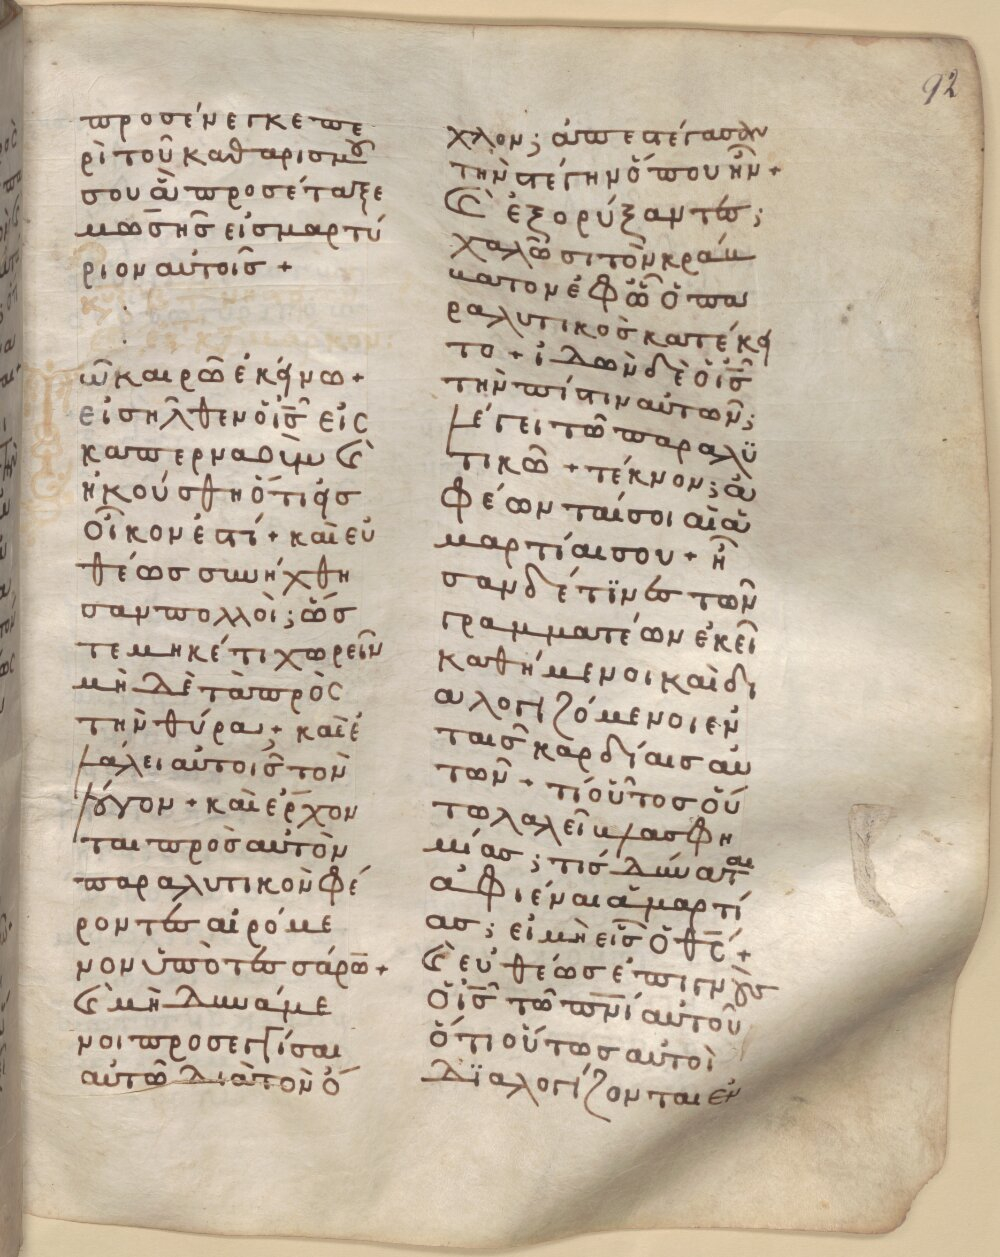 92
προσένεγκε πε
ρὶ τοῦ καθαρισμοῦ
σου ἃ προσέταξε
μωσῆς εἰς μαρτύ
ριον αὐτοῖς +
ῶ καιρῶ ἐκείνω +
εἰσῆλθεν ὁ ις εἰς
καπερναούμ κὲ
ἠκούσθη ὅτι εἰς
οἶκον ἐστί + καὶ εὐ
θέως συνήχθη
σαν πολλοὶ ; ὥς
τε μηκέτι χωρεῖν
μὴ δὲ τὰ πρὸς
τὴν θύραν + καὶ ἐ
λάλει αὐτοῖς τὸν
λόγον + καὶ ἔρχον
ται πρὸς αὐτὸν
παραλυτικὸν φέ
ροντες αἰρόμε
νον ὑπὸ τεσσάρω +
κὲ μὴ δυνάμε
νοι προσεγγίσαι
αὐτῶ διὰ τὸν ὄ
χλον ; ἀπεστέγασαν
τὴν στέγην ὅπου ἦν +
κὲ ἐξορύξαντες ;
χαλῶσι τὸν κράμ
ματον ἐφ ὧ ὁ πα
ραλυτικὸς κατέκει
το + ἰδὼν δὲ ὁ ις
τὴν πίστιν αὐτῶν ;
λέγει τῶ παραλϋ
τικῶ + τέκνον ; ἀ
φέωνταί σοι αἱ ἁ
μαρτίαι σου + ἦ
σαν δέ τϊνες τῶν
γραμματέων ἐκεῖ
καθήμενοι καὶ δι
αλογιζόμενοι ἐν
ταῖς καρδίαις αὐ
τῶν + τί οὗτος οὕ
τω λαλεῖ βλασφη
μίας ; τίς δύναται
ἀφιέναι ἁμαρτί
ας ; εἰ μὴ εἷς ὁ θς +
κὲ εὐθέως ἐπιγνοὺς
ὁ ις τῶ πνι αὐτοῦ
ὅτι οὕτως αὐτοὶ
δϊαλογίζονται ἐν